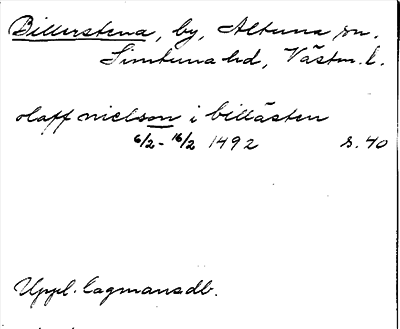 Billerstena, by, Altuna sn.
Simtuna hd, Västm. l.
olaff nielson i billästen
6/2 - 16/2 1492 s. 40
Uppl. lagmansdb.